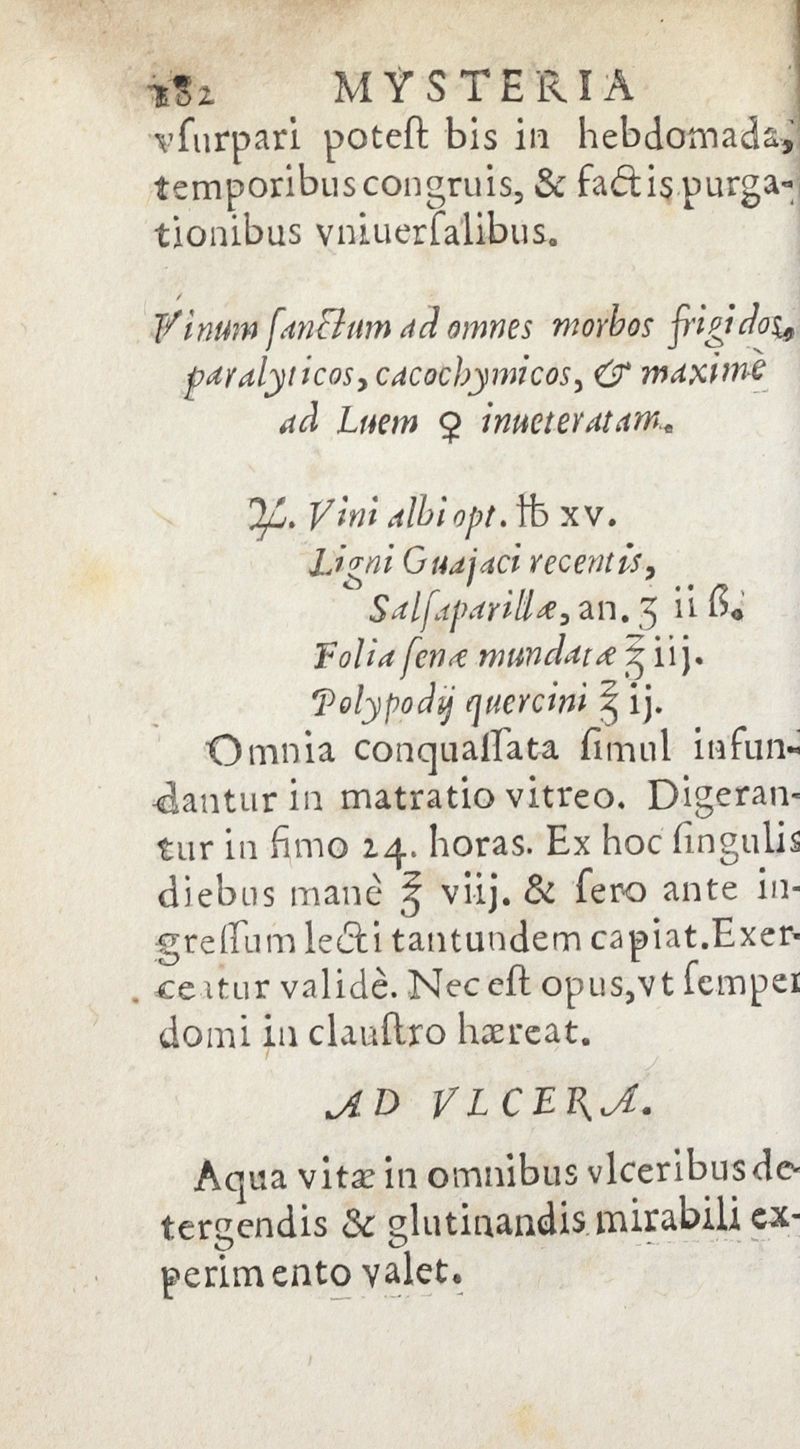 182 MYSTERIA
vſurpari poteſt bis in hebdomada,
temporibus congruis, & factis purga-
tionibus vniuerſalibus.
Vinum ſanctum ad omnes morbos frigidos,
paralyticos, cacochymicos, & maximè
ad Luem ♀ inueteratam.
℞. Vini albi opt. ℔ xv.
Ligni Guajaci recentis,
Salſaparillæ, an. ʒ ii ß.
Folia ſenæ mundatæ ℥ iij.
Polypodij quercini ℥ ij.
Omnia conquaſſata ſimul infun-
dantur in matratio vitreo. Digeran-
tur in fimo 24. horas. Ex hoc ſingulis
diebus manè ℥ viij. & ſero ante in-
greſſum lecti tantundem capiat. Exer-
ceatur validè. Nec eſt opus, vt ſemper
domi in clauſtro hæreat.
AD VLCERA.
Aqua vitæ in omnibus vlceribus de-
tergendis & glutinandis mirabili ex-
perimento valet.